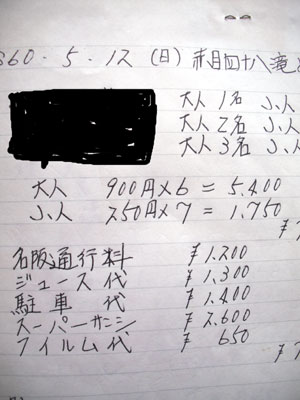 S60・5・12 (日) 赤目四十八滝
大人 1名 小人
大人 2名 小人
大人 3名 小人
大人 900円×6 = 5.400
小人 250円×7 = 1.750
¥
名阪通行料 ¥1.200
ジュース代 ¥1.300
駐車代 ¥1.400
スーパーサンシ ¥2.600
フイルム代 ¥650
¥